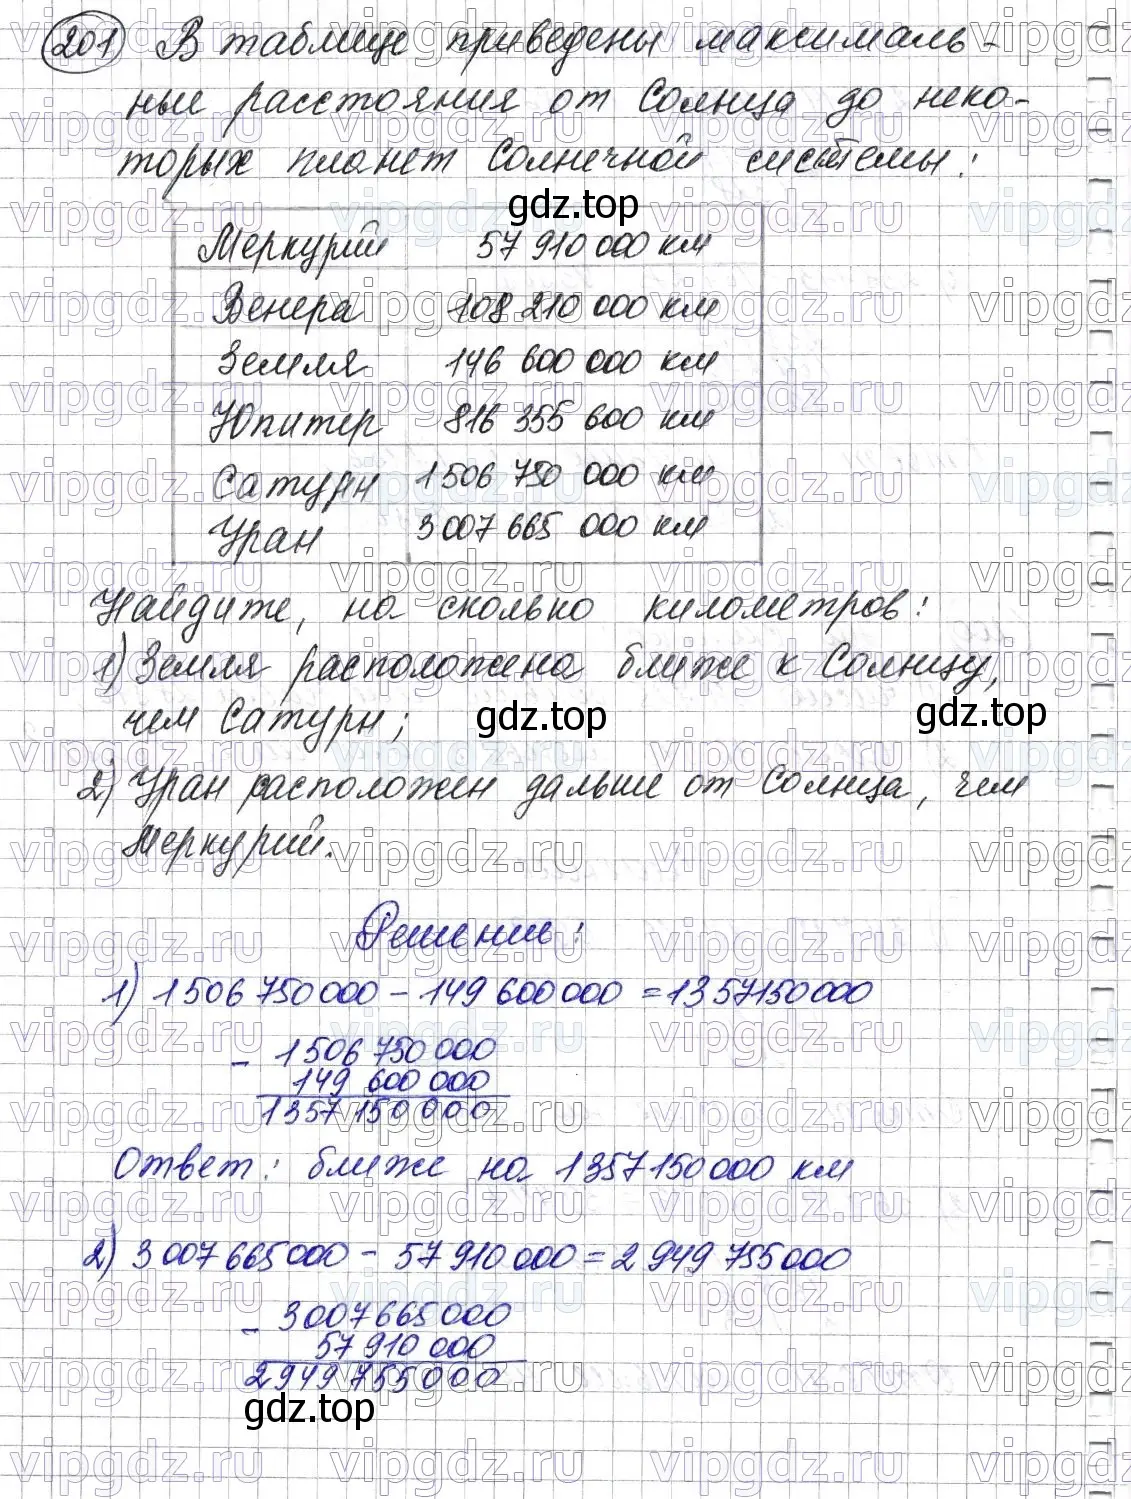 201 В таблице приведены максималь-
ные расстояния от Солнца до неко-
торых планет Солнечной системы:
gdz.top
Меркурий 57 910 000 км
Венера 108 210 000 км
Земля 146 600 000 км
Юпитер 816 355 600 км
Сатурн 1 506 750 000 км
Уран 3 007 665 000 км
Найдите, на сколько километров:
1) Земля расположена ближе к Солнцу,
чем Сатурн;
gdz.top gdz.top
2) Уран расположен дальше от Солнца, чем
Меркурий.
Решение:
1) 1 506 750 000 - 149 600 000 = 1357150000
- 1 506 750 000
149 600 000
1357 150 000
Ответ: ближе на 1357150000 км
2) 3 007 665 000 - 57 910 000 = 2 949 755 000
- 3 007 665 000
57 910 000
2949 755 000
gdz.top
vipgdz.ru